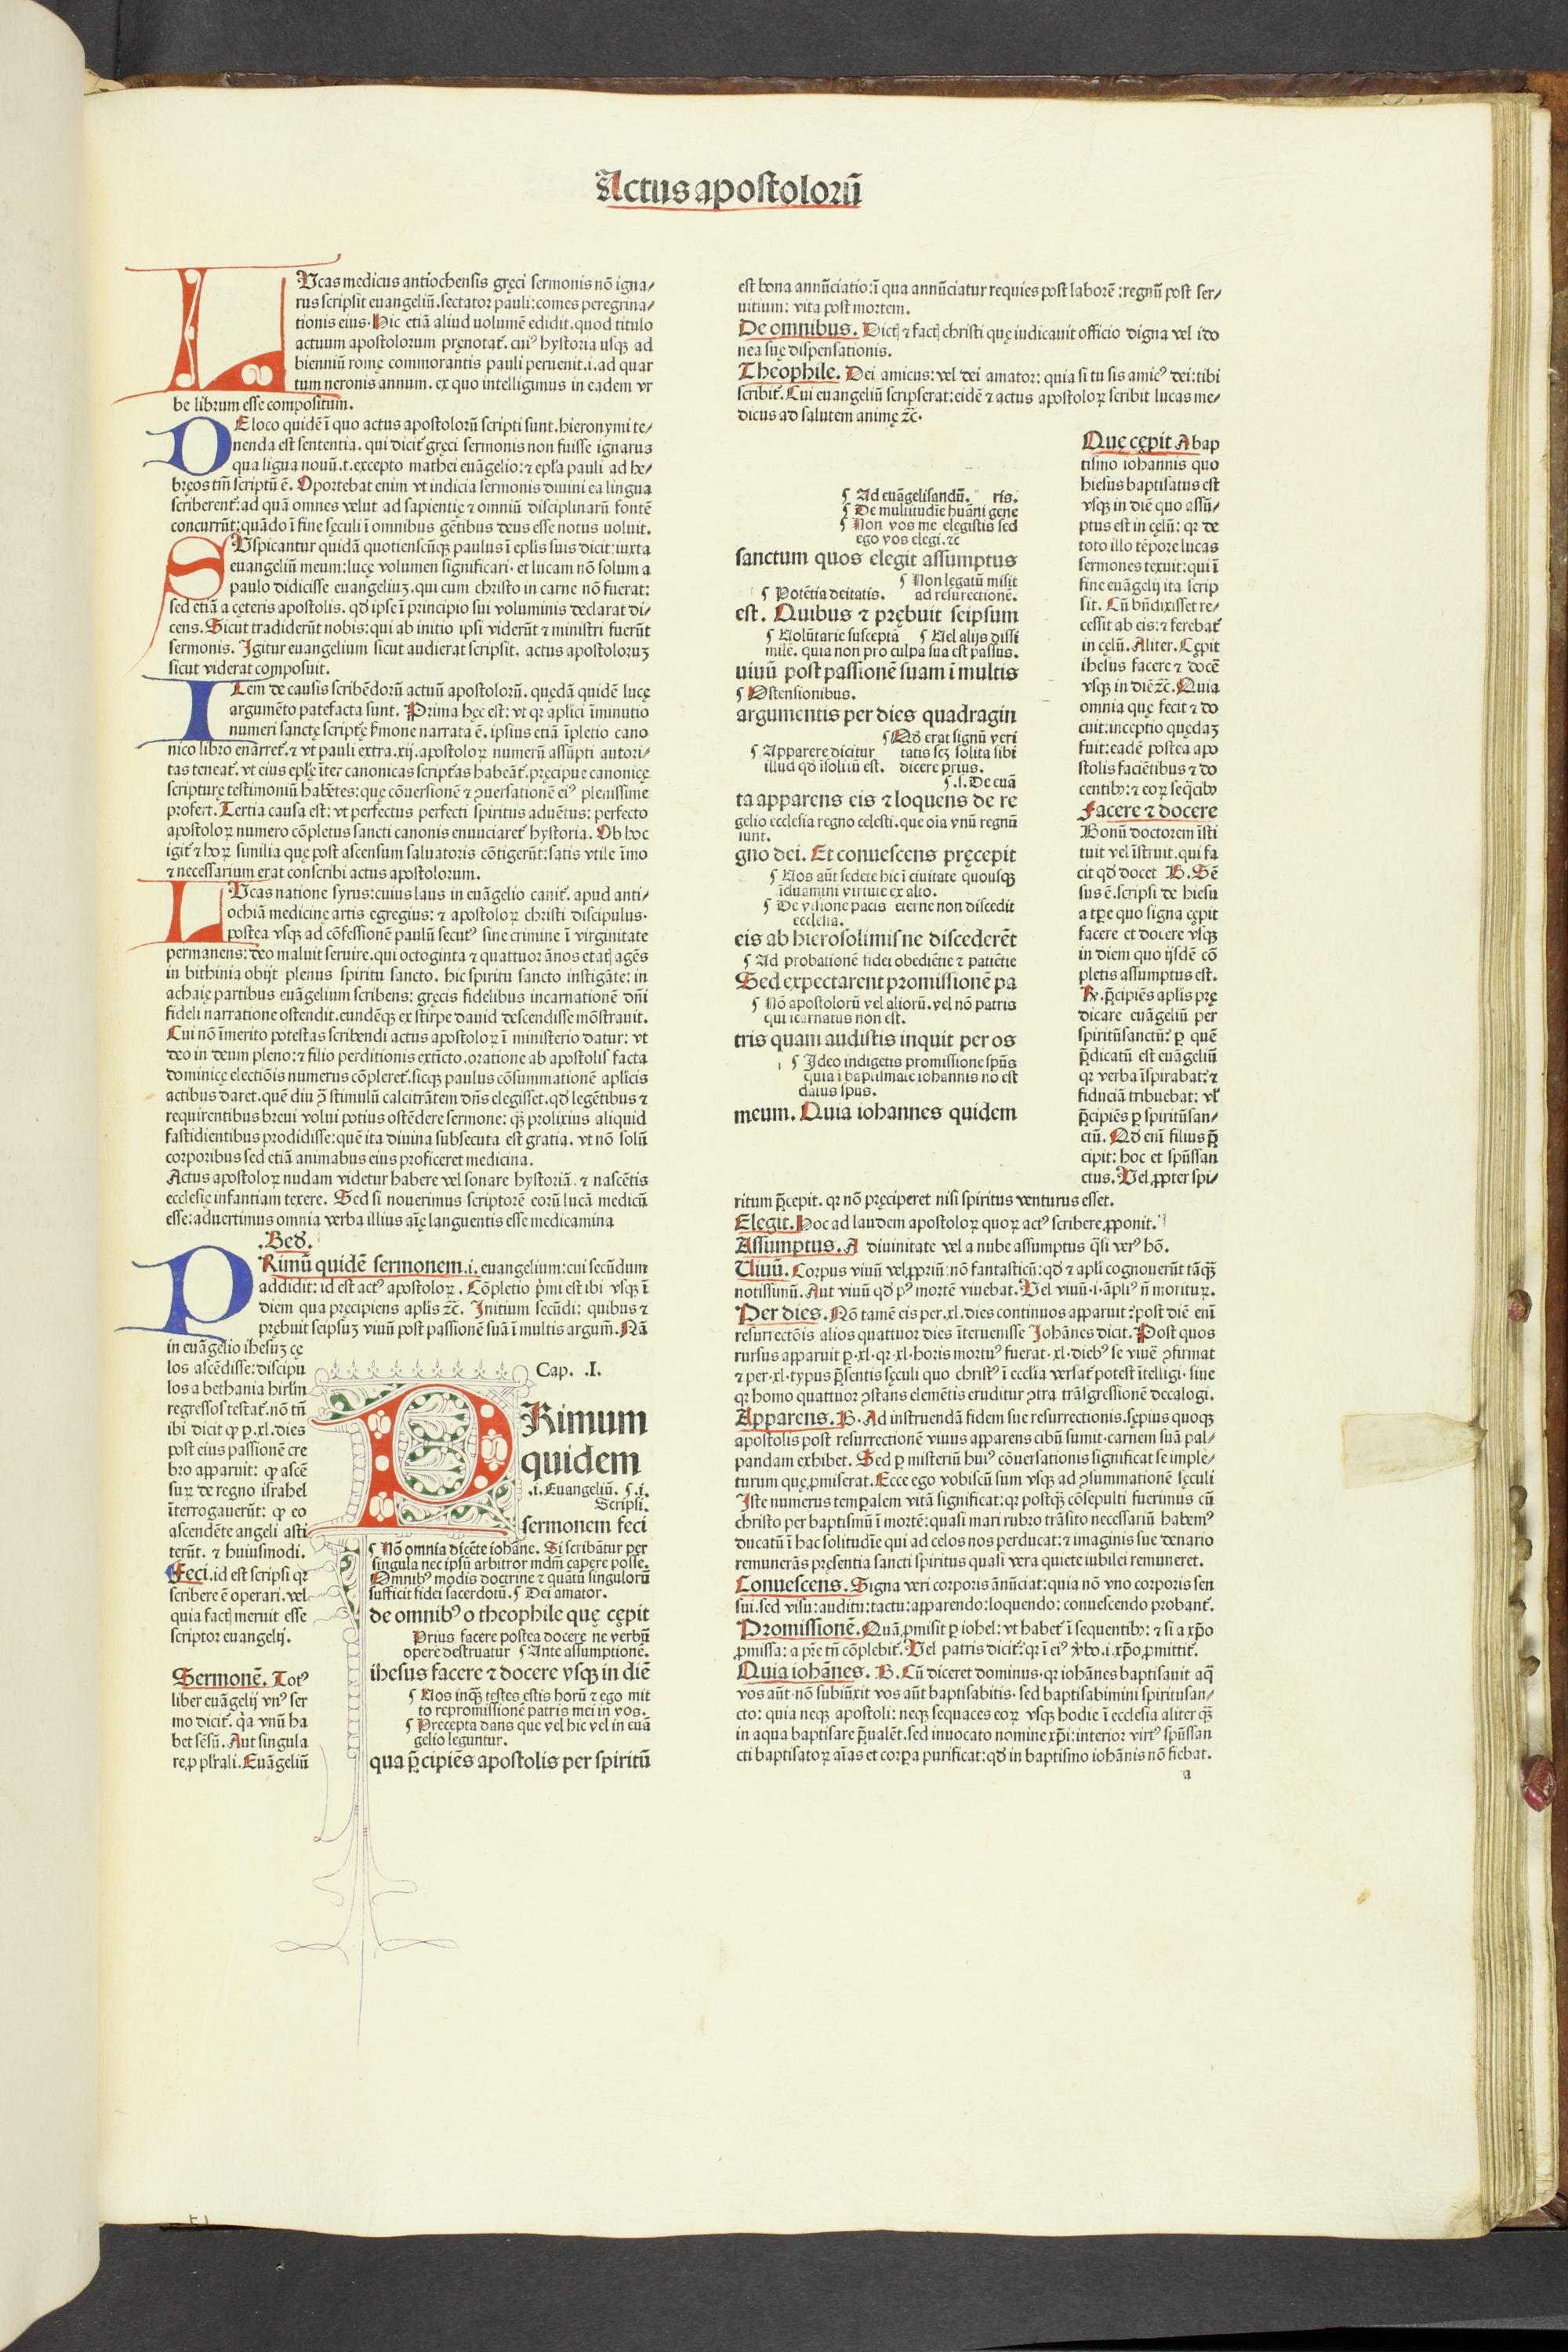 Actus apostolorū
LVcas medicus antiochensis gręci sermonis nō igna/
rus scripsit euangeliū.sectator pauli:comes peregrina/
tionis eius. Hic etiā aliud uolumē edidit.quod titulo
actuum apostolorum pręnotat᷑. cui⁹ hystoria usqꝫ ad
bienniū romę commorantis pauli peruenit.i.ad quar
tum neronis annum. ex quo intelligimus in eadem vr
be librum esse compositum.
DE loco quidē ī quo actus apostolorū scripti sunt.hieronymi te/
nenda est sententia. qui dicit᷑ gręci sermonis non fuisse ignarus
qua ligua nouū.t.excepto mathei euāgelio:⁊ epl'a pauli ad he/
bręos tm̄ scriptū ē. Oportebat enim vt indicia sermonis diuini ea lingua
scriberent᷑:ad quā omnes velut ad sapientię ⁊ omniū disciplinarū fontē
concurrūt:quādo ī fine sęculi ī omnibus gētibus deus esse notus uoluit.
SVspicantur quidā quotienscūqꝫ paulus ī ep̄lis suis dicit:iuxta
euangeliū meum:lucę volumen significari. et lucam nō solum a
paulo didicisse euangeliuꝫ.qui cum christo in carne nō fuerat:
sed etiā a cęteris apostolis. qđ ipse ī principio sui voluminis declarat di/
cens.Sicut tradiderūt nobis:qui ab initio ipsi viderūt ⁊ ministri fuerūt
sermonis. Igitur euangelium sicut audierat scripsit. actus apostoloruꝫ
sicut viderat composuit.
ITem de causis scribēdorū actuū apostolorū. quędā quidē lucę
argumēto patefacta sunt. Prima hęc est: vt qꝛ aplici īminutio
numeri sanctę scriptę sermone narrata ē. ipsius etiā īpletio cano
nico libro enarret᷑.⁊ vt pauli extra.xij.apostoloꝝ numerū assūpti autori/
tas teneat᷑. vt eius eplę īter canonicas script᷑as habeāt᷑.pręcipue canonicę
scripturę testimoniū habētes:quę cōuersionē ⁊ ꝯuersationē ei⁹ plenissime
profert. Tertia causa est: vt perfectus perfecti spiritus aduētus: perfecto
apostoloꝝ numero cōpletus sancti canonis enunciaret᷑ hystoria. Ob hoc
igit᷑ ⁊ hoꝝ similia quę post ascensum saluatoris cōtigerūt:satis vtile īmo
⁊ necessarium erat conscribi actus apostolorum.
LVcas natione syrus:cuius laus in euāgelio canit᷑. apud anti/
ochiā medicinę artis egregius: ⁊ apostoloꝝ christi discipulus.
postea vsqꝫ ad cōfessionē paulū secut⁹ sine crimine ī virginitate
permanens:deo maluit seruire.qui octoginta ⁊ quattuor ānos etatꝭ agēs
in bithinia obijt plenus spiritu sancto. hic spiritu sancto instigāte: in
achaię partibus euāgelium scribens: gręcis fidelibus incarnationē dn̄i
fideli narratione ostendit.eundēqꝫ ex stirpe dauid descendisse mōstrauit.
Cui nō īmerito potestas scribendi actus apostoloꝝ ī ministerio datur: vt
deo in deum pleno:⁊ filio perditionis extīcto.oratione ab apostolis facta
dominicę electiōis numerus cōpleret᷑.sicqꝫ paulus cōsummationē aplicis
actibus daret.quē diu ꝯ̄ stimulū calcitrātem dn̄s elegisset.qđ legētibus ⁊
requirentibus breui volui potius ostēdere sermone: qꝫ prolixius aliquid
fastidientibus prodidisse:quē ita diuina subsecuta est gratia. vt nō solū
corporibus sed etiā animabus eius proficeret medicina.
Actus apostoloꝝ nudam videtur habere vel sonare hystoriā. ⁊ nascētis
ecclesię infantiam texere. Sed si nouerimus scriptorē eorū lucā medicū
esse:aduertimus omnia verba illius aīę languentis esse medicamina
.Bed.
PRimū quidē sermonem.i.euangelium:cui secūdum
addidit: id est act⁹ apostoloꝝ. Cōpletio pͥmi est ibi vsqꝫ ī
diem qua pręcipiens aplis ⁊c̄. Initium secūdi: quibus ⁊
prębuit seipsuꝫ viuū post passionē suā ī multis argum̄.Nā
in euāgelio ihesuꝫ cę
los ascēdisse:discipu
los a bethania hirlm̄
regressos testat᷑.nō tn̄
ibi dicit ꝙ ꝑ.xl.dies
post eius passionē cre
bro apparuit: ꝙ ascē
suꝝ de regno israhel
īterrogauerūt: ꝙ eo
ascendēte angeli asti
terūt. ⁊ huiusmodi.
Feci.id est scripsi qꝛ
scribere ē operari. vel
quia factꝭ meruit esse
scriptor euangelij.
Sermonē. Tot⁹
liber euāgelij vn⁹ ser
mo dicit᷑. qͣa vnū ha
bet sēsū. Aut singula
re,ꝓ plr̄ali. Euāgeliū
Cap. .I.
PRimum
quidem
.i. Euangeliū. ¶.i.
Scripsi.
sermonem feci
¶ Nō omnia dicēte iohāne. Si scribātur per
singula nec ipsū arbitror mdm̄ capere posse.
Omnib⁹ modis doctrine ⁊ quātū singulorū
sufficit fidei sacerdotū.¶ Dei amator.
de omnib⁹ o theophile quę cępit
Prius facere postea docere ne verbū
opere destruatur ¶Ante assumptionē.
ihesus facere ⁊ docere vsqꝫ in diē
¶ Uos inqꝫ testes estis horū ⁊ ego mit
to repromissionē patris mei in vos.
¶ Precepta dans que vel hic vel in euā
gelio leguntur.
qua p̄cipiēs apostolis per spiritū
est bona annūciatio:ī qua annūciatur requies post laborē:regnū post ser/
uitium: vita post mortem.
De omnibus. Dictꝭ ⁊ factꝭ christi quę iudicauit officio digna vel ido
nea suę dispensationis.
Theophile. Dei amicus: vel dei amator: quia si tu sis amic⁹ dei:tibi
scribit᷑. Cui euangeliū scripserat:eidē ⁊ actus apostoloꝝ scribit lucas me/
dicus ad salutem animę ⁊c̄.
¶ Ad euāgelisandū. ris.
¶ De multitudīe huāni gene
¶ Non vos me elegistis sed
ego vos elegi.⁊c
sanctum quos elegit assumptus
¶ Non legatū misit
¶ Potētia deitatis. ad resurectionē.
est. Quibus ⁊ prębuit seipsum
¶ Uolūtarie suscepta ¶ Uel alijs dissi
milē. quia non pro culpa sua est passus.
uiuū post passionē suam ī multis
¶ Ostensionibus.
argumentis per dies quadragin
¶ Qđ erat signū veri
¶ Apparere dicitur tatis scꝫ solita sibi
illud qđ īsolitū est. dicere prius.
¶.i. De euā
ta apparens eis ⁊ loquens de re
gelio ecclesia regno celesti.que oīa vnū regnū
sunt.
gno dei. Et conuescens pręcepit
¶ Uos aūt sedete hic ī ciuitate quousqꝫ
īduamini virtute ex alto.
¶ De visione pacis eterne non discedit
ecclesia.
eis ab hierosolimis ne discederēt
¶ Ad probationē fidei obediētie ⁊ patiētie
Sed expectarent promissionē pa
¶ Nō apostolorū vel aliorū.vel nō patris
qui icarnatus non est.
tris quam audistis inquit per os
¶ Ideo indigetis promissione spūs
quia ī baptismate iohannis no est
datus spus.
meum. Quia iohannes quidem
Que cępit. A bap
tismo iohannis quo
hiesus baptisatus est
vsqꝫ in diē quo assū/
ptus est in cęlū: qꝛ de
toto illo tēpore lucas
sermones texuit:qui ī
fine euāgelij ita scrip
sit. Cū bn̄dixisset re/
cessit ab eis:⁊ ferebat᷑
in cęlū. Aliter. Cępit
ihesus facere ⁊ docē
vsqꝫ in diē⁊c̄. Quia
omnia quę fecit ⁊ do
cuit:inceptio quędaꝫ
fuit:eadē postea apo
stolis faciētibus ⁊ do
centibꝫ:⁊ eoꝝ seqͣcibꝫ
Facere ⁊ docere
Bonū doctorem īsti
tuit vel īstruit.qui fa
cit qđ docet B. Sē
sus ē.scripsi de hiesu
a tꝑe quo signa cępit
facere et docere vsqꝫ
in diem quo ijsdē cō
pletis assumptus est.
R.p̄cipiēs aplis pre
dicare euāgeliū per
spiritūsanctū: ꝑ quē
p̄dicatū est euāgeliū
qꝛ verba īspirabat:⁊
fiduciā tribuebat: vl'
p̄cipiēs ꝑ spiritūsan/
ctū. Qđ eni filius p̄
cipit: hoc et spūssan
ctus. Vel,ꝓpter spi/
ritum p̄cepit. qꝛ nō pręciperet nisi spiritus venturus esset.
Elegit. Hoc ad laudem apostoloꝝ quoꝝ act⁹ scribere ꝓponit.
Assumptus. A diuinitate vel a nube assumptus qͣsi ver⁹ hō.
Uiuū. Corpus viuū vel ꝓpriū:nō fantasticū:qđ ⁊ apli cognouerūt tāqꝫ
notissimū. Aut viuū qđ p⁹ mortē viuebat. Vel viuū.i.āpli⁹ n̄ morituꝝ.
Per dies. Nō tamē eis per.xl.dies continuos apparuit:post diē enī
resurrectōis alios quattuor dies īteruenisse Iohānes dicit. Post quos
rursus apparuit ꝑ.xl.qꝛ.xl.horis mortu⁹ fuerat.xl.dieb⁹ se viuē ꝯfirmat
⁊ per.xl.typus p̄sentis sęculi quo christ⁹ ī eccl̄ia versat᷑ potest ītelligi. siue
qꝛ homo quattuor ꝯstans elemētis eruditur ꝯtra trāsgressionē decalogi.
Apparens. B. Ad instruendā fidem sue resurrectionis.sępius quoqꝫ
apostolis post resurrectionē viuus apparens cibū sumit.carnem suā pal/
pandam exhibet. Sed ꝑ misteriū hui⁹ cōuersationis significat se imple/
turum quę,ꝓmiserat.Ecce ego vobiscū sum vsqꝫ ad ꝯsummationē sęculi
Iste numerus temꝑalem vitā significat:qꝛ postqꝫ cōsepulti fuerimus cū
christo per baptismū ī mortē:quasi mari rubro trāsito necessariū habem⁹
ducatū ī hac solitudīe qui ad celos nos perducat:⁊ imaginis sue denario
remunerās pręsentia sancti spiritus quasi vera quiete iubilei remuneret.
Conuescens. Signa veri corporis ānūciat:quia nō vno corporis sen
sui.sed visu:auditu:tactu:apparendo:loquendo:conuescendo probant᷑.
Promissionē. Quā,ꝓmisit ꝑ iohel: vt habet᷑ ī sequentibꝫ: ⁊ si a xp̄o
ꝓmissa: a pr̄e tn̄ cōplebit᷑. Vel patris dicit᷑: qꝛ ī ei⁹ v̾bo.i.xp̄o,ꝓmittit᷑.
Quia iohānes. B. Cū diceret dominus.qꝛ iohānes baptisauit aqͣ
vos aūt.nō subiūxit vos aūt baptisabitis.sed baptisabimini spiritusan/
cto: quia neqꝫ apostoli: neqꝫ sequaces eoꝝ vsqꝫ hodie ī ecclesia aliter qꝫ
in aqua baptisare p̄ualēt.sed inuocato nomine xp̄i:interior virt⁹ spūssan
cti baptisatoꝝ aīas et corꝑa purificat:qđ in baptismo iohānis nō fiebat.
a